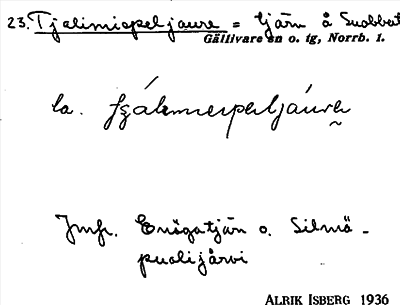 23. Tjalimispeljaure = tjärn å Suobbat
Gällivare sn o. tg, Norrb. l.
la.
Jmfr. Enögatjärn o. Silmä-
puolijärvi
ALRIK ISBERG 1936